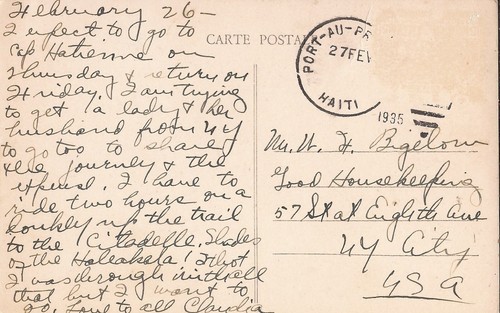 February 26—
I expect to go to
Cap Hatienne on
Thursday & return on
Friday. I am trying
to get a lady & her
husband from NY
to go too to share
the journey & the
expense. I have to
ride two hours on a
donkey up the trail
to the Citadelle. Shades
of the Haleakala! Thot
I was through with all
that but I want to
go. Love to all Claudia
CARTE POSTALE
PORT-AU-PR
27 FEV
HAITI
1935
Mr. W. F. Bigelow
Good Housekeeping
57 St at Eighth Ave
NY City
USA